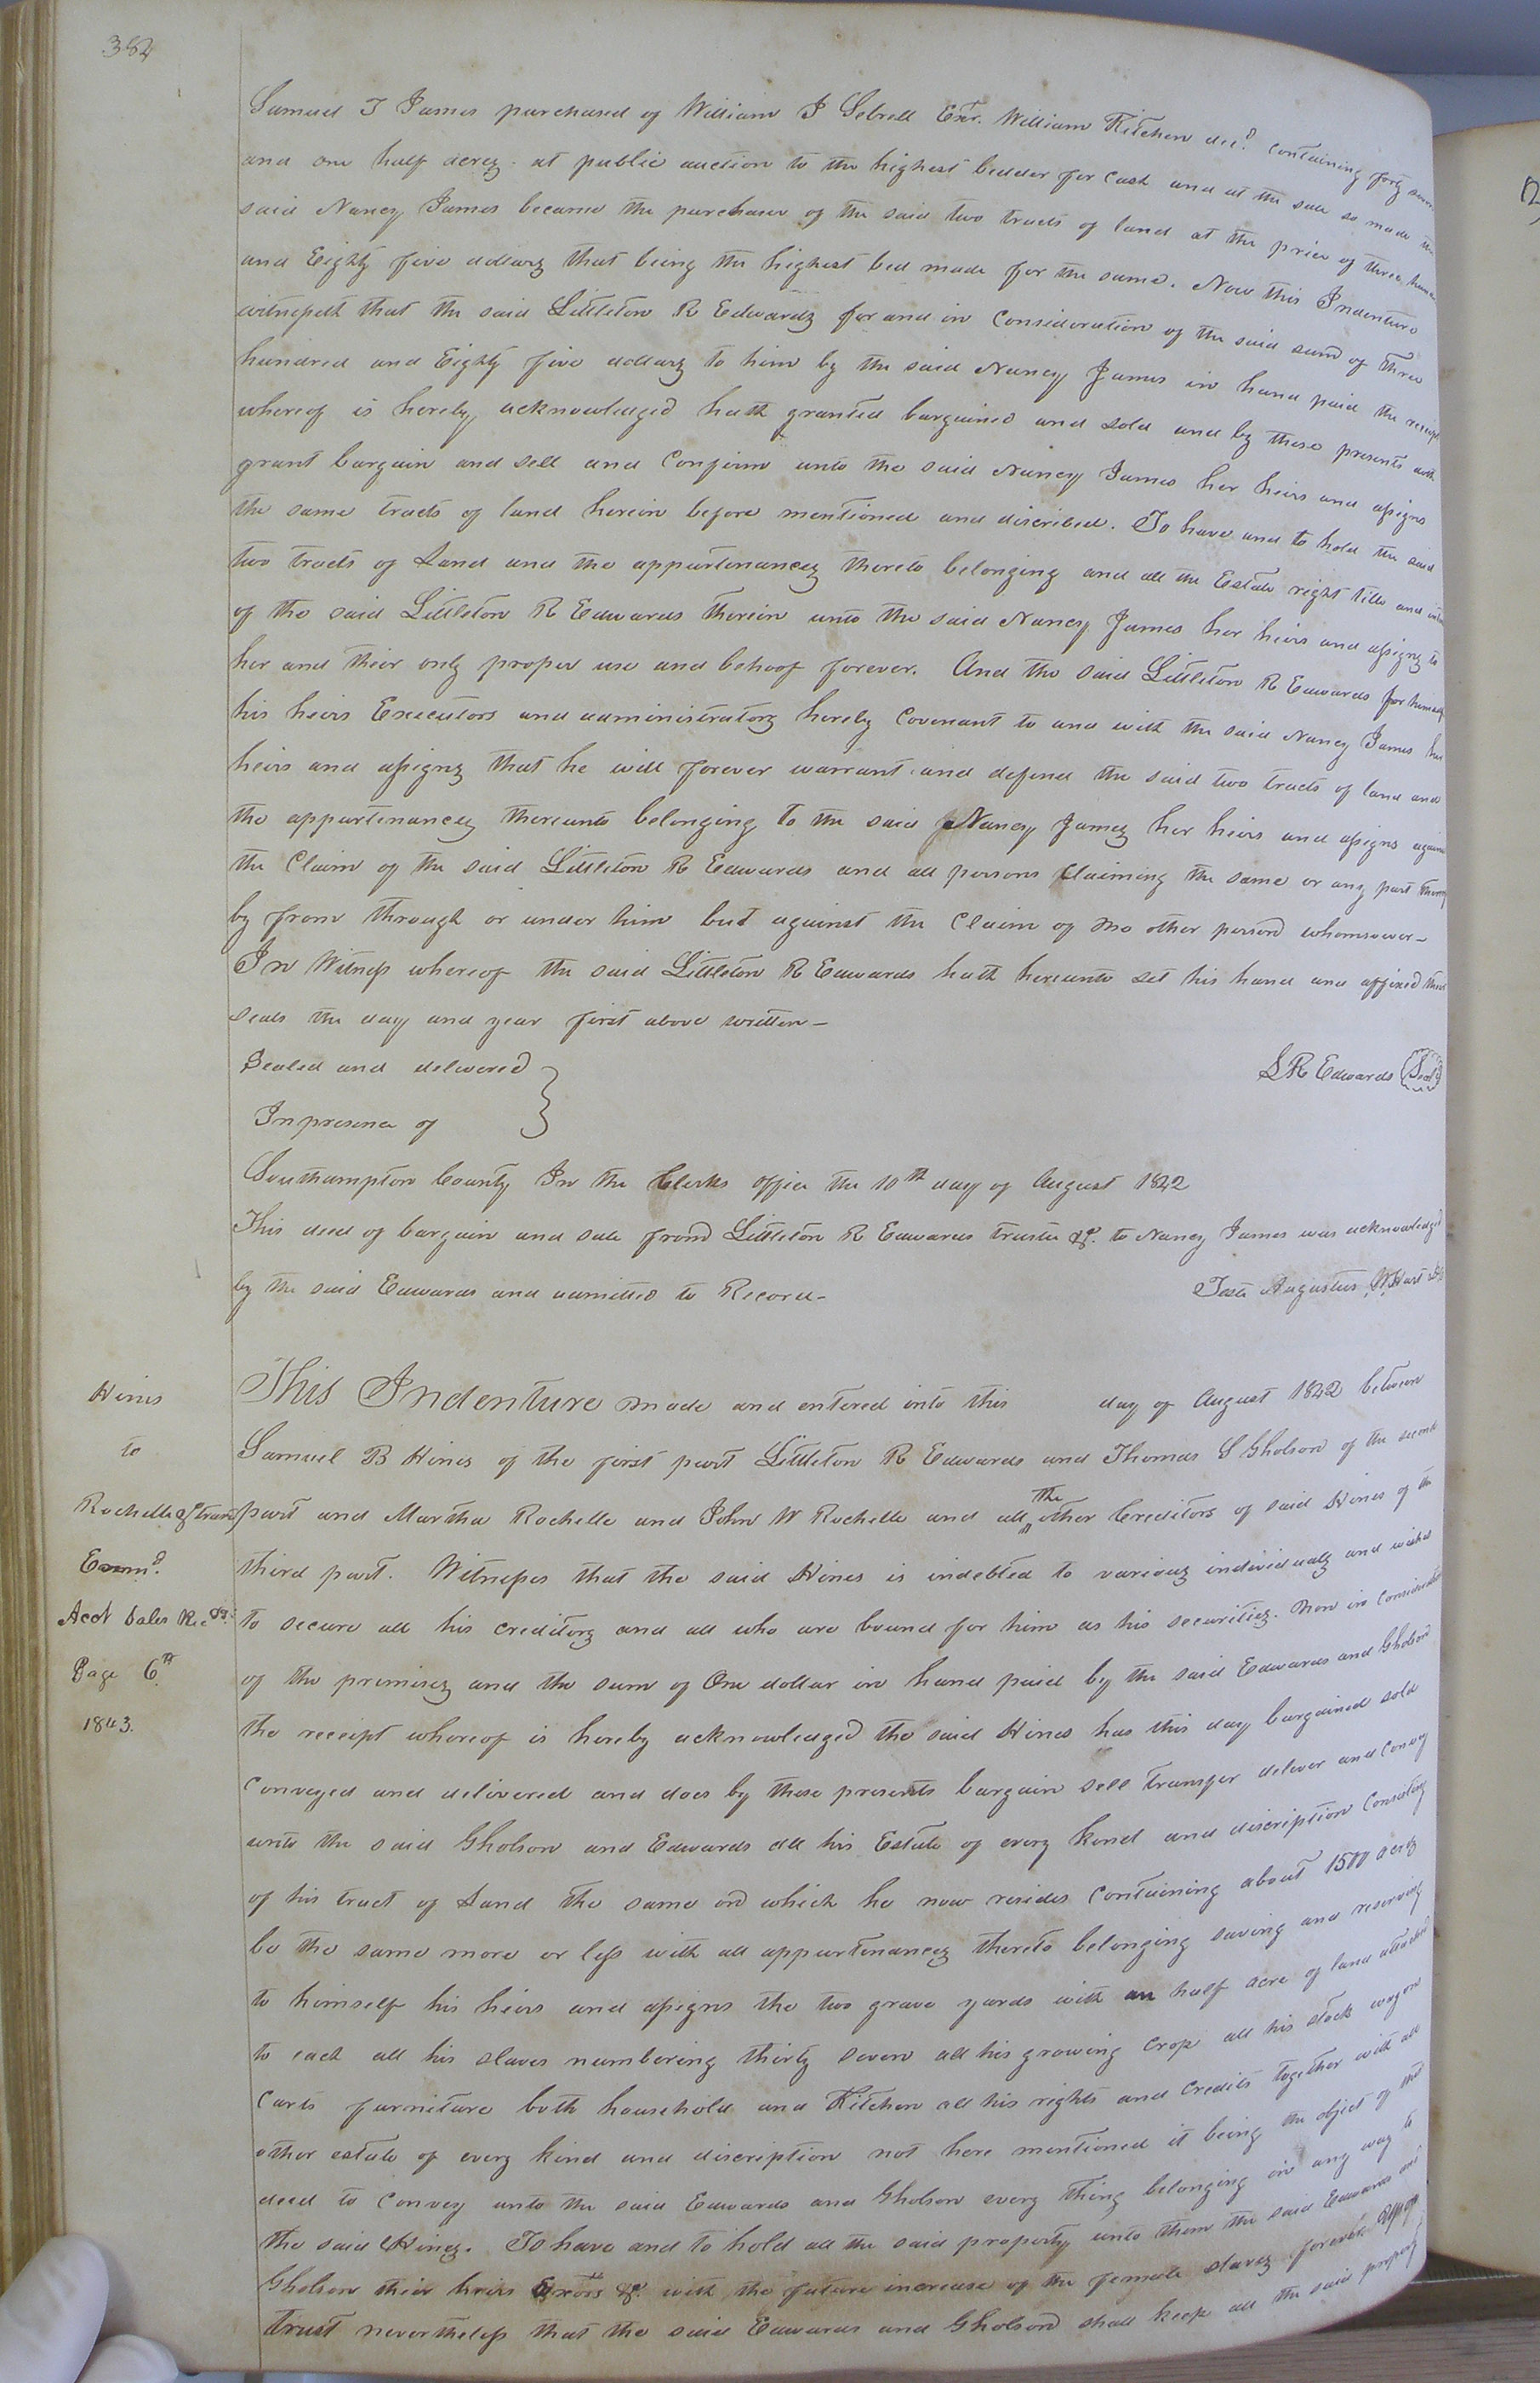 382
Samuel T James purchased of William J Sebrell Exr. William Kitchen decd. containing forty seven
and one half acres. at public auction to the highest bidder for Cash and at the sale so made the
said Nancy James became the purchaser of the said two tracts of land at the price of three
and Eighty five dollars that being the highest bid made for the same. Now this Indenture
witnesseth that the said Littleton R Edwards for and in Consideration of the said sum of three
hundred and Eighty five dollars to him by the said Nancy James in hand paid the receipt
whereof is hereby acknowledged hath granted bargained and sold and by these presents doth
grant bargain and sell and Confirm unto the said Nancy James her heirs and assigns
the same tracts of land herein before mentioned and discribed. To have and to hold the said
two tracts of Land and the appurtenances thereto belonging and all the Estate right title and
of the said Littleton R Edwards therein unto the said Nancy James her heirs and assigns to
her and their only proper use and behoof forever. And the said Littleton R Edwards for himself
his heirs Executors and administrators hereby Covenant to and with the said Nancy James her
heirs and assigns that he will forever warrant and defend the said two tracts of land and
the appurtenances thereunto belonging to the said Nancy James her heirs and assigns against
the Claim of the said Littleton R Edwards and all persons Claiming the same or any part thereof
by from through or under him but against the Claim of no other person whomsoever-
In Witness whereof the said Littleton R Edwards hath hereunto set his hand and affixed
seals the day and year first above written-
Sealed and delivered
In presence of
L R Edwards Seal
Southampton County In the Clerks office the 10th day of August 1842
This deed of bargain and sale from Littleton R Edwards trustee &c. to Nancy James was acknowledged
by the said Edwards and admitted to Record-
Teste Augustus W Hart
Hines
to
Rochelle &
Examd.
Acct Sales
Page 6th
1843.
This Indenture made and entered into this day of August 1842 between
Samuel B Hines of the first part Littleton R Edwards and Thomas S Gholson of the second
part and Martha Rochelle and John W Rochelle and all the other Creditors of said Hines of the
third part. Witnesses that the said Hines is indebted to various individuals and wishes
to secure all his creditors and all who are bound for him as his securities. Now in consideration
of the premises and the sum of One dollar in hand paid by the said Edwards and Gholson
the receipt whereof is hereby acknowledged the said Hines has this day bargained sold
Conveyed and delivered and does by these presents bargain sell transfer deliver and convey
unto the said Gholson and Edwards all his Estate of every kind and discription Consisting
of his tract of Land the same on which he now resides Containing about 1500 acres
be the same more or less with all appurtenances thereto belonging saving and reserving
to himself his heirs and assigns the two grave yards with an half acre of land attached
to each all his slaves numbering thirty seven all his growing crop all his stock wagon
Carts furniture both household and Kitchen all his rights and Credits together with all
other estate of every kind and discription not here mentioned it being the object of this
deed to Convey unto the said Edwards and Gholson every thing belonging in any way to
the said Hines. To have and to hold all the said property unto them the said Edwards and
Gholson their heirs &c. with the future increase of the female slaves forever.
trust nevertheless that the said Edwards and Gholson shall keep all the said property